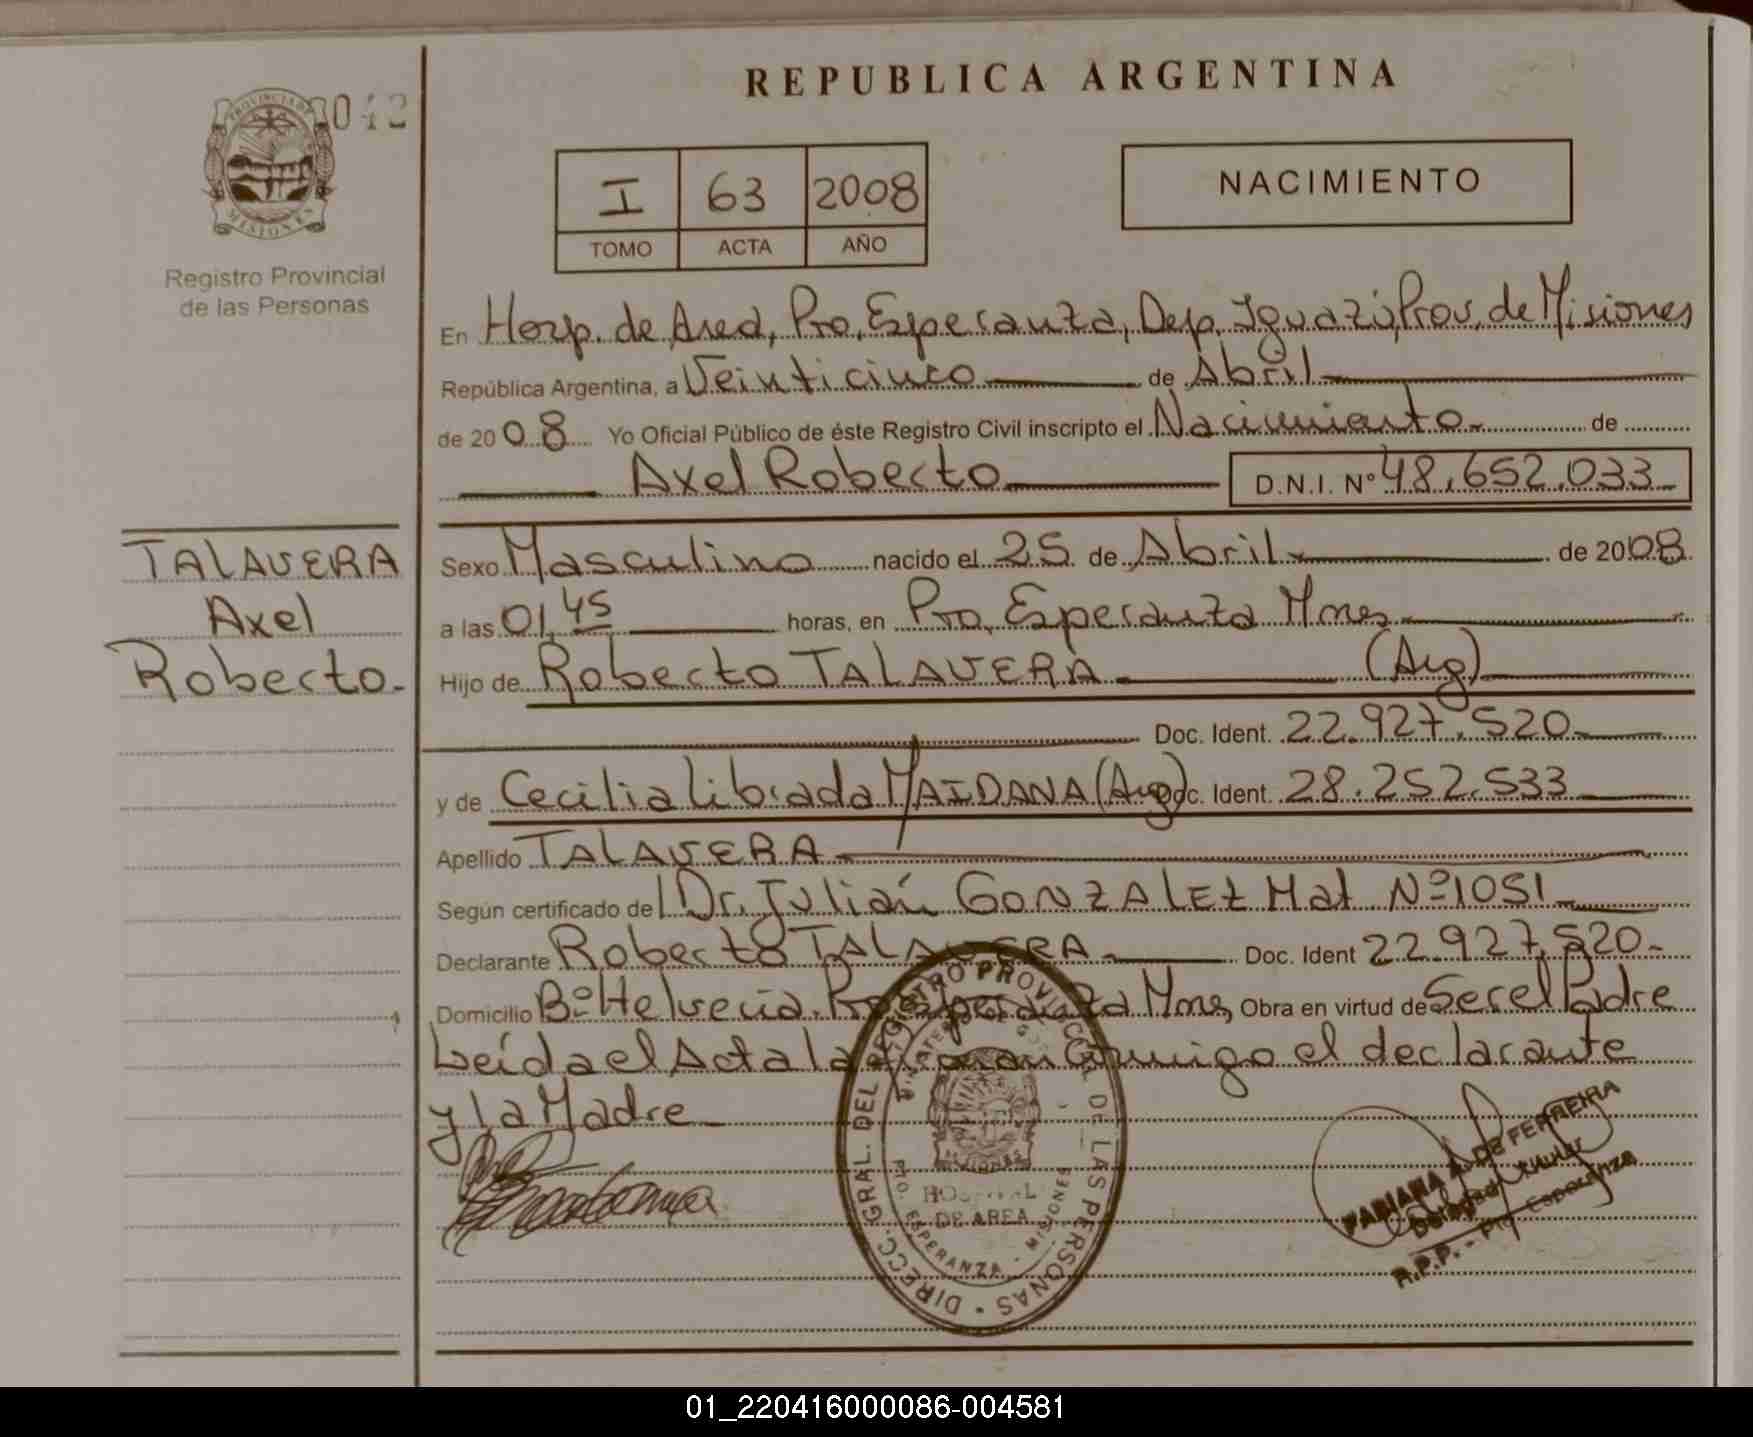 REPUBLICA ARGENTINA
042
PROVINCIA DE
MISIONES
Registro Provincial
de las Personas
I 63 2008
TOMO ACTA AÑO
NACIMIENTO
En Hosp. de Area, Pto, Esperanza, Dep. Iguazú, Prov. de Misiones
República Argentina, a Veinticinco de Abril
de 20 08 Yo Oficial Público de éste Registro Civil inscripto el Nacimiento de
Axel Roberto D.N.I. Nº 48.652.033
TALAVERA
Axel
Roberto
Sexo Masculino nacido el 25 de Abril de 2008
a las 01,45 horas, en Pto, Esperanza Mnes
Hijo de Roberto TALAVERA (Arg)
Doc. Ident. 22.927.520
y de Cecilia Librada MAIDANA (Arg) Doc. Ident. 28.252.533
Apellido TALAVERA
Según certificado del Dr. Julián GONZALEZ Mat Nº 1051
Declarante Roberto TALAVERA Doc. Ident 22.927.520
Domicilio Bº Helvecia. Pto Esperanza Mnes, Obra en virtud de Ser el Padre
Leída el Acta la firman Conmigo el declarante
y la Madre
DIRECC. GRAL. DEL REGISTRO PROVINCIAL DE LAS PERSONAS
HOSPITAL
DE AREA
PTO. ESPERANZA - MISIONES
FABIANA A. DE FERREIRA
Delegada Titular
R.P.P. - Pto Esperanza
01_220416000086-004581